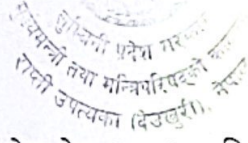 लुम्बिनी प्रदेश सरकार
मुख्यमन्त्री तथा मन्त्रिपरिषद्को
राप्ती उपत्यका (देउखुरी), नेपाल